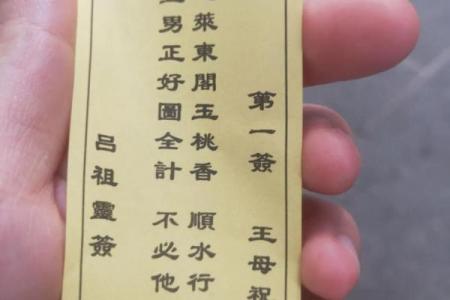 第一簽 王母祝
萊東閣玉桃香 順水行
男正好圖全計 不必他
呂祖靈簽